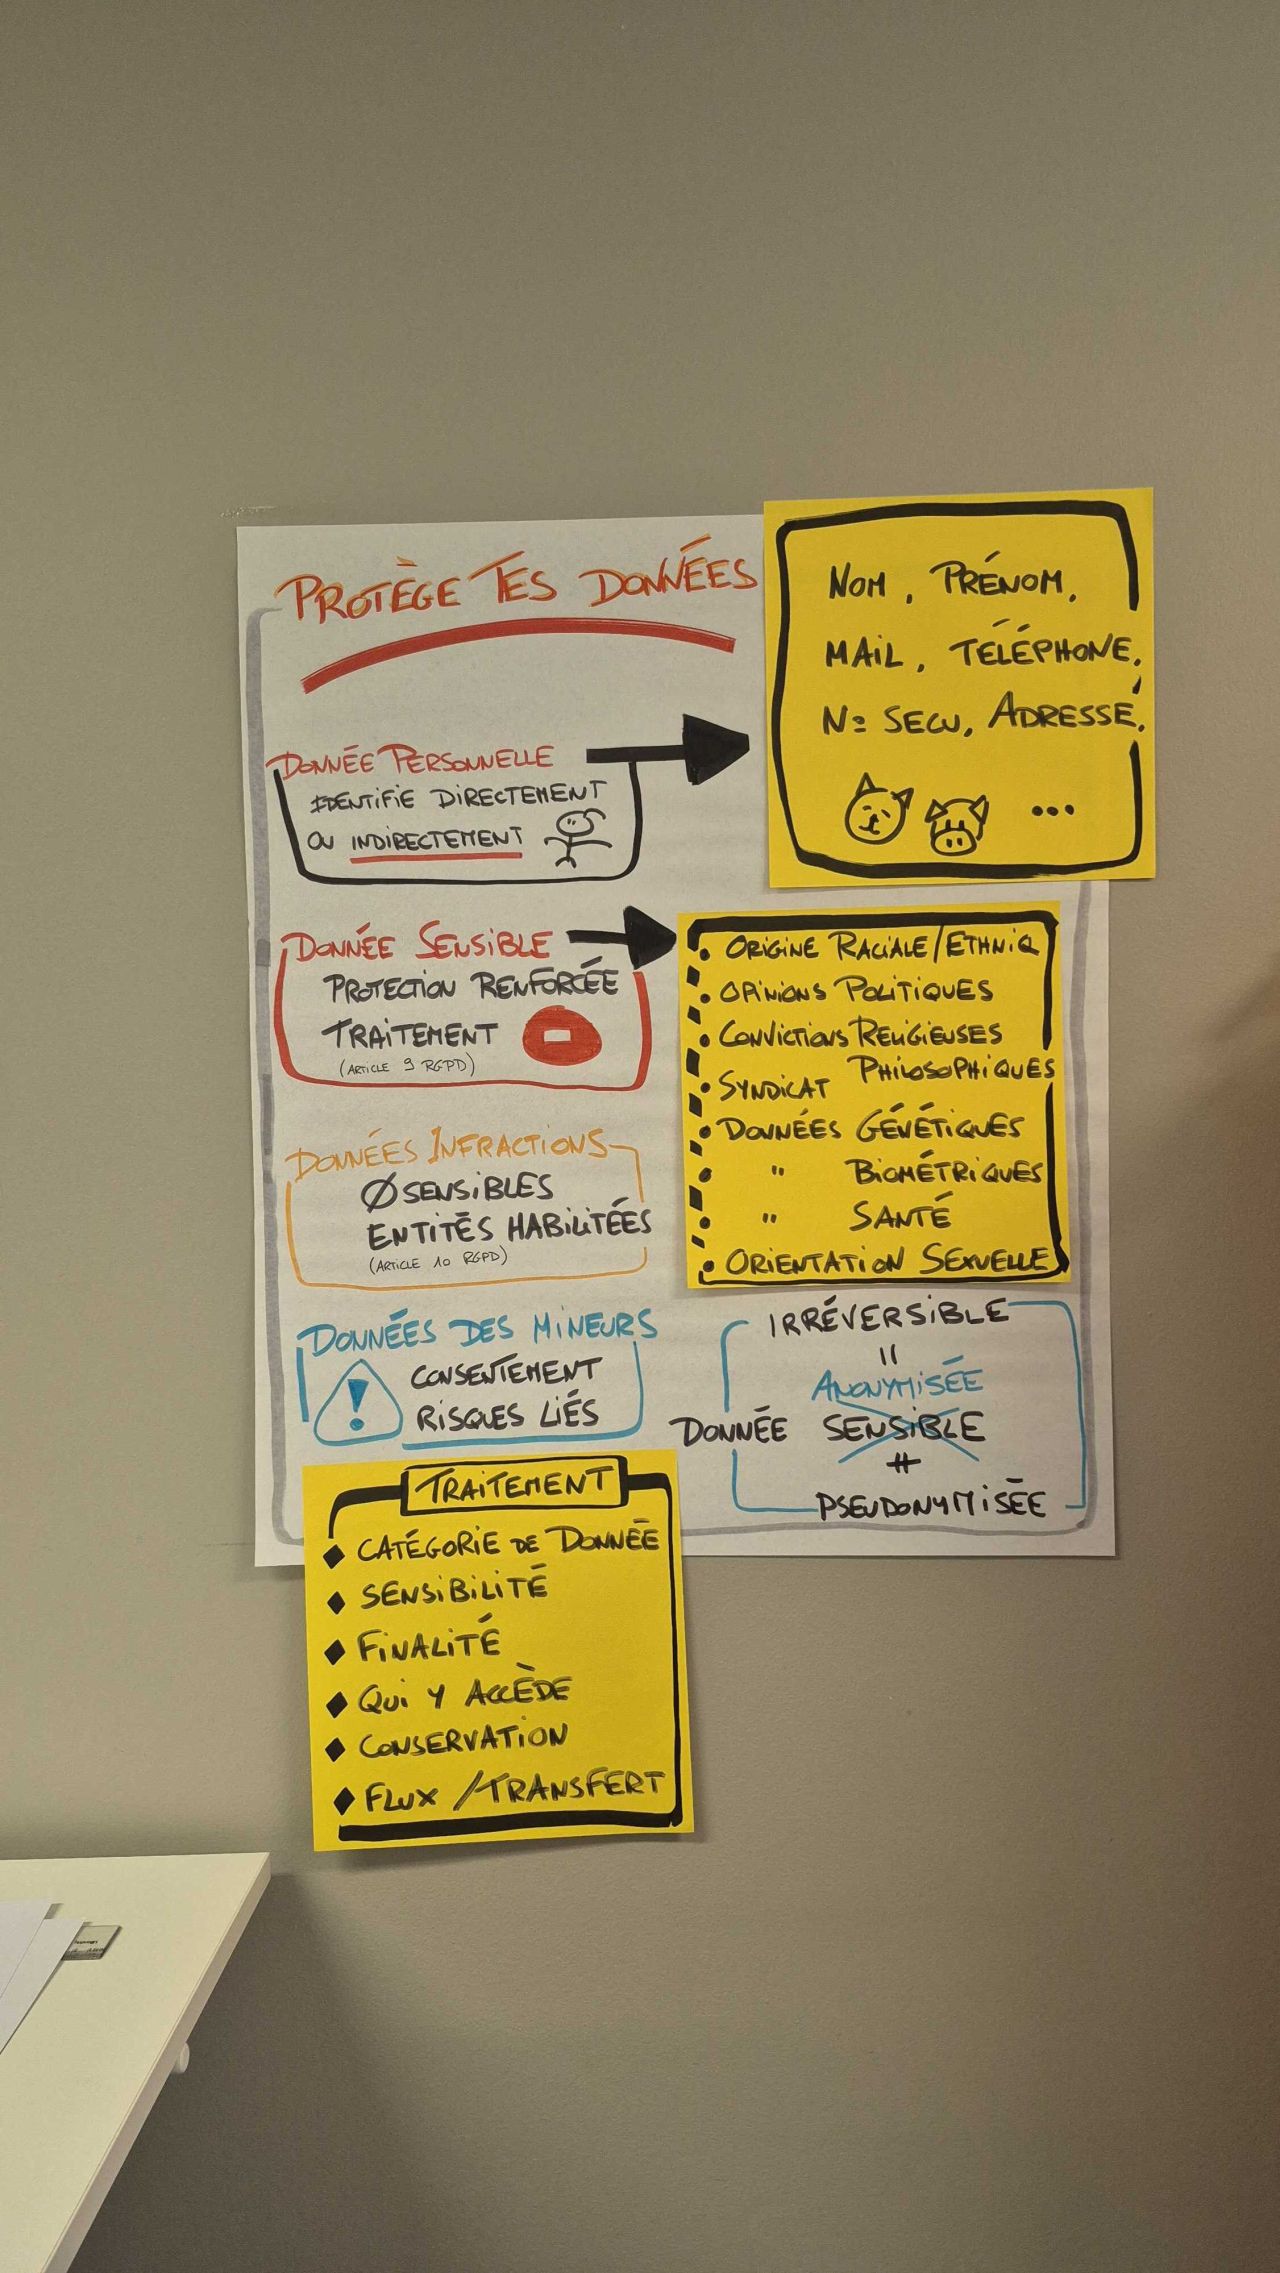 PROTÈGE TES DONNÉES
NOM, PRÉNOM,
MAIL, TÉLÉPHONE,
N= SECU, ADRESSE,
...
DONNÉE PERSONNELLE
IDENTIFIE DIRECTEMENT
OU INDIRECTEMENT
DONNÉE SENSIBLE
PROTECTION RENFORCÉE
TRAITEMENT
(ARTICLE 9 RGPD)
• ORIGINE RACIALE/ETHNIQ
• OPINIONS POLITIQUES
• CONVICTIONS RELIGIEUSES
PHILOSOPHIQUES
• SYNDICAT
• DONNÉES GÉNÉTIQUES
• " BIOMÉTRIQUES
• " SANTÉ
• ORIENTATION SEXUELLE
DONNÉES INFRACTIONS
Ø SENSIBLES
ENTITÉS HABILITÉES
(ARTICLE 10 RGPD)
DONNÉES DES MINEURS
!
CONSENTEMENT
RISQUES LIÉS
IRRÉVERSIBLE
=
ANONYMISÉE
DONNÉE SENSIBLE
≠
PSEUDONYMISÉE
TRAITEMENT
♦ CATÉGORIE DE DONNÉE
♦ SENSIBILITÉ
♦ FINALITÉ
♦ QUI Y ACCÈDE
♦ CONSERVATION
♦ FLUX / TRANSFERT